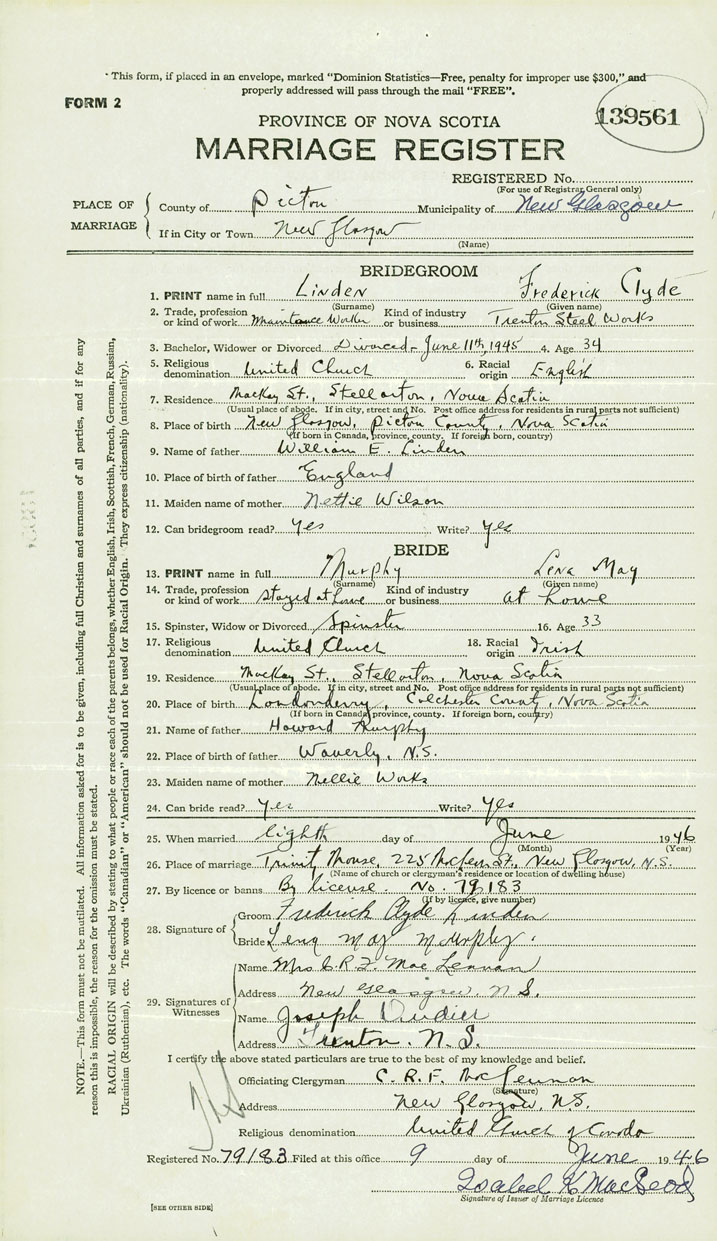 * This form, if placed in an envelope, marked "Dominion Statistics—Free, penalty for improper use $300," and
properly addressed will pass through the mail "FREE".
FORM 2
139561
PROVINCE OF NOVA SCOTIA
MARRIAGE REGISTER
REGISTERED No.
(For use of Registrar General only)
PLACE OF MARRIAGE
County of Pictou Municipality of New Glasgow
If in City or Town New Glasgow
(Name)
BRIDEGROOM
1. PRINT name in full Linden Frederick Clyde
(Surname) (Given name)
2. Trade, profession or kind of work Maintance Worker Kind of industry or business Trenton Steel Works
3. Bachelor, Widower or Divorced Divorced - June 11th, 1945 4. Age 34
5. Religious denomination United Church 6. Racial origin English
7. Residence MacKay St., Stellarton, Nova Scotia
(Usual place of abode. If in city, street and No. Post office address for residents in rural parts not sufficient)
8. Place of birth New Glasgow, Pictou County, Nova Scotia
(If born in Canada, province, county. If foreign born, country)
9. Name of father William E. Linden
10. Place of birth of father England
11. Maiden name of mother Nettie Wilson
12. Can bridegroom read? Yes Write? Yes
BRIDE
13. PRINT name in full Murphy Lena May
(Surname) (Given name)
14. Trade, profession or kind of work Stayed at home Kind of industry or business at home
15. Spinster, Widow or Divorced Spinster 16. Age 33
17. Religious denomination United Church 18. Racial origin Irish
19. Residence MacKay St., Stellarton, Nova Scotia
(Usual place of abode. If in city, street and No. Post office address for residents in rural parts not sufficient)
20. Place of birth Londonderry, Colchester County, Nova Scotia
(If born in Canada, province, county. If foreign born, country)
21. Name of father Howard Murphy
22. Place of birth of father Waverly, N.S.
23. Maiden name of mother Nellie Works
24. Can bride read? Yes Write? Yes
25. When married eighth day of June 1946
(Month) (Year)
26. Place of marriage Trinity Manse, 225 St., New Glasgow, N.S.
(Name of church or clergyman's residence or location of dwelling house)
27. By licence or banns By license. No. 79183
(If by licence, give number)
28. Signature of
Groom Frederick Clyde Linden
Bride Lena May Murphy.
29. Signatures of Witnesses
Name Mrs C.R.F. MacLennan
Address New Glasgow, N.S.
Name Joseph
Address Trenton. N.S.
I certify the above stated particulars are true to the best of my knowledge and belief.
Officiating Clergyman C. R. F. MacLennan
(Signature)
Address New Glasgow, N.S.
Religious denomination United Church of Canada
Registered No. 79183 Filed at this office 9 day of June 1946
Isabel K MacLeod
Signature of Issuer of Marriage Licence
[SEE OTHER SIDE]
NOTE.—This form must not be mutilated. All information asked for is to be given, including full Christian and surnames of all parties, and if for any
reason this is impossible, the reason for the omission must be stated.
RACIAL ORIGIN will be described by stating to what people or race each of the parents belongs, whether English, Irish, Scottish, French, German, Russian,
Ukrainian (Ruthenian), etc. The words "Canadian" or "American" should not be used for Racial Origin. They express citizenship (nationality).